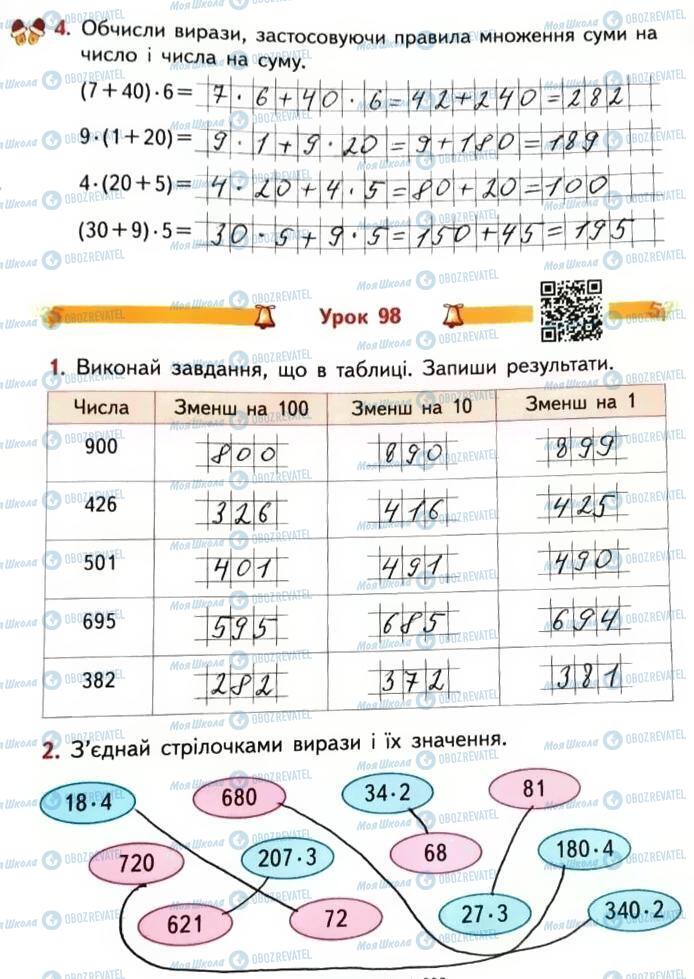 4. Обчисли вирази, застосовуючи правила множення суми на
число і числа на суму.
(7+40)·6= 7·6+40·6=42+240=282
9·(1+20)= 9·1+9·20=9+180=189
4·(20+5)= 4·20+4·5=80+20=100
(30+9)·5= 30·5+9·5=150+45=195
Урок 98
1. Виконай завдання, що в таблиці. Запиши результати.
Числа Зменш на 100 Зменш на 10 Зменш на 1
900 800 890 899
426 326 416 425
501 401 491 490
695 595 685 694
382 282 372 381
2. З'єднай стрілочками вирази і їх значення.
18·4 680 34·2 81
720 207·3 68 180·4
621 72 27·3 340·2